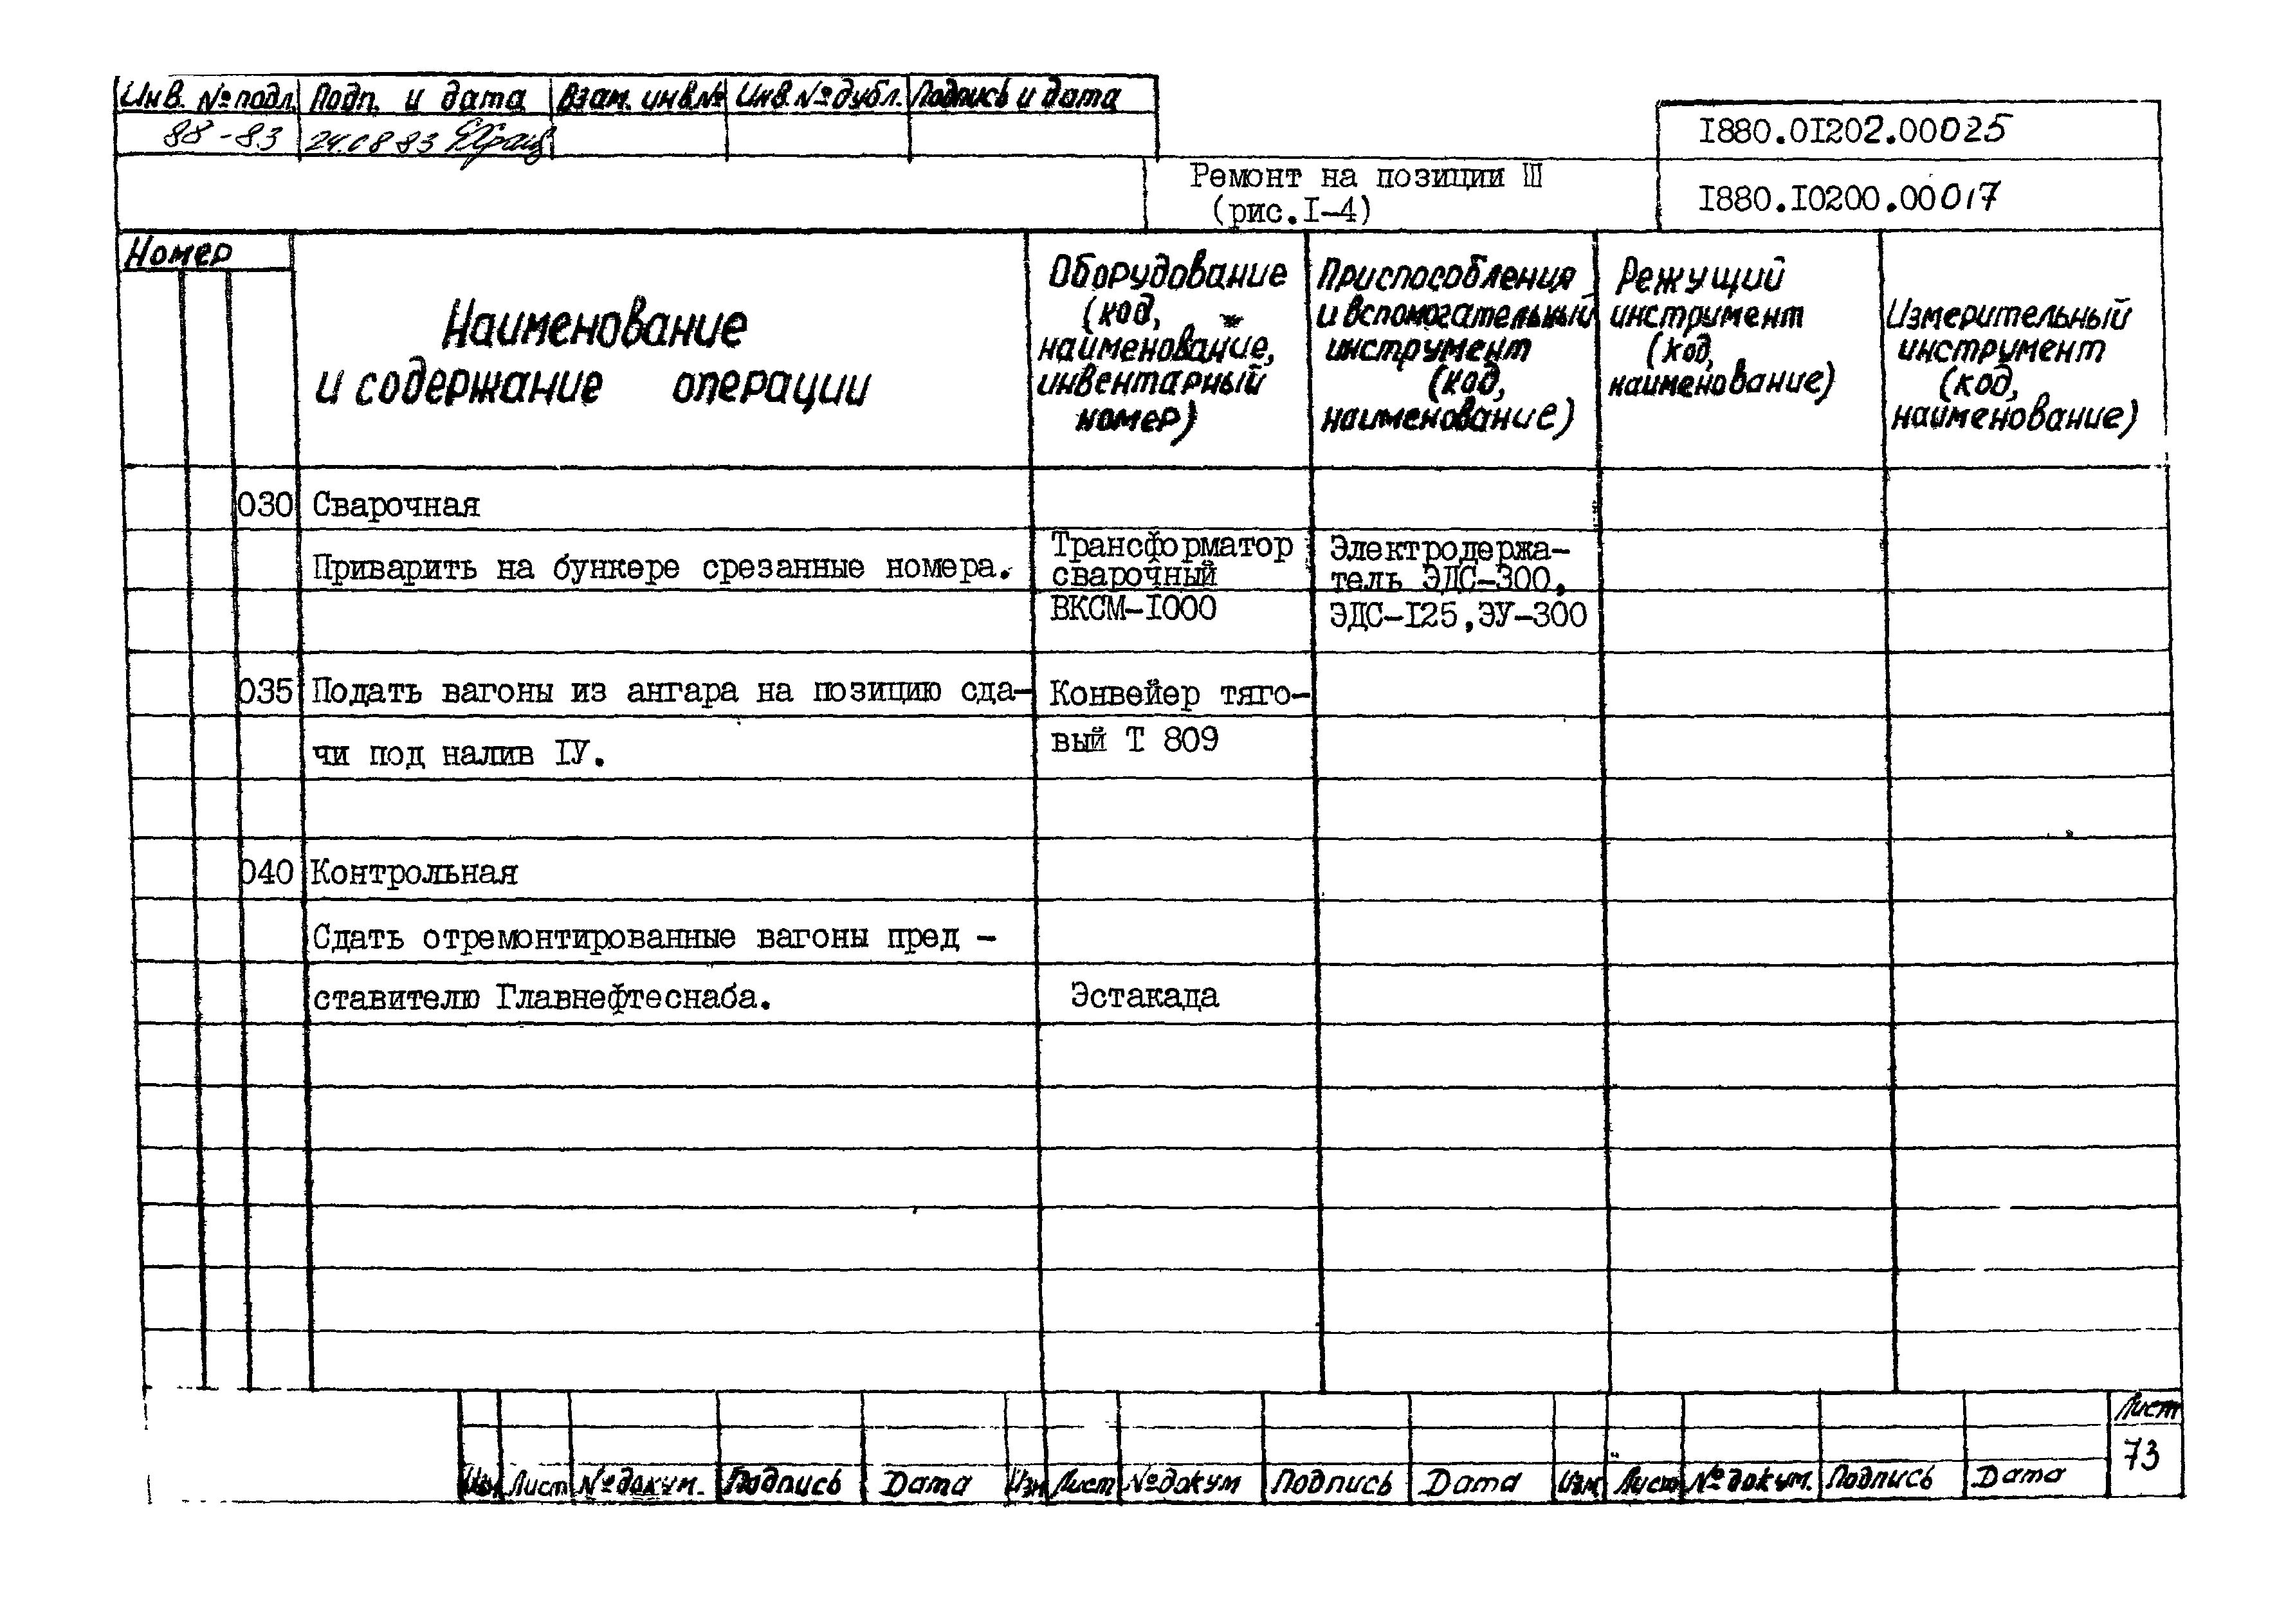 Инв. № подл. Подп. и дата Взам. инв № Инв. № дубл. Подпись и дата
88-83 24.08 83
I880.0I202.00025
Ремонт на позиции Ш
(рис.I-4)
I880.I0200.00017
Номер
Наименование
и содержание операции
Оборудование
(код,
наименование,
инвентарный
номер)
Приспособления
и вспомогательный
инструмент
(код,
наименование)
Режущий
инструмент
(код,
наименование)
Измерительный
инструмент
(код,
наименование)
030 Сварочная
Приварить на бункере срезанные номера.
Трансформатор
сварочный
ВКСМ-I000
Электродержа-
тель ЭДС-300,
ЭДС-I25,ЭУ-300
035 Подать вагоны из ангара на позицию сда-
чи под налив IУ.
Конвейер тяго-
вый Т 809
040 Контрольная
Сдать отремонтированные вагоны пред -
ставителю Главнефтеснаба.
Эстакада
Лист
73
Изм Лист № докум. Подпись Дата Изм Лист № докум Подпись Дата Изм Лист № докум. Подпись Дата